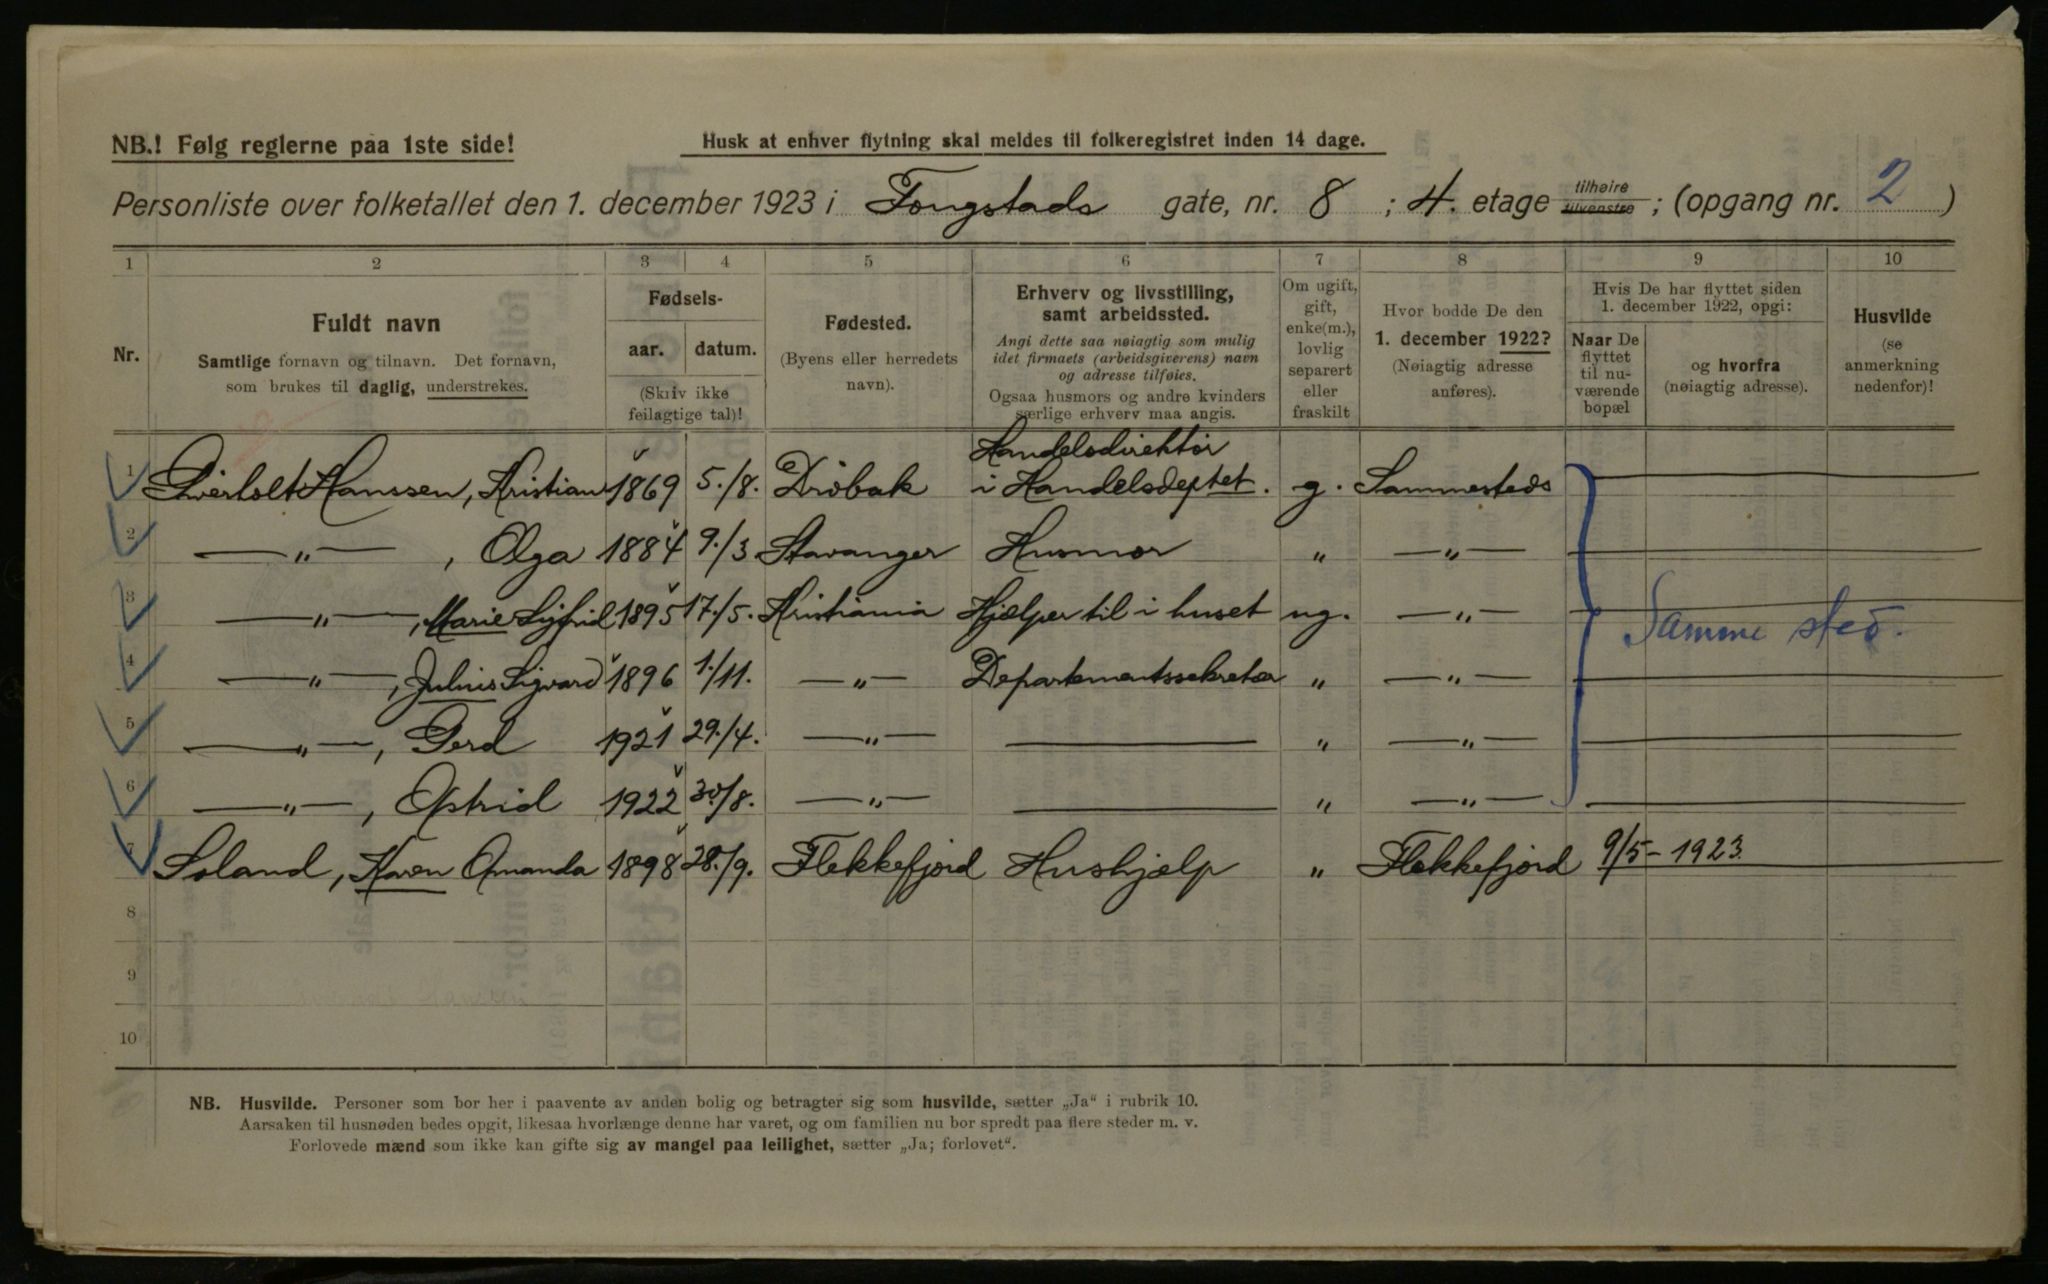 NB.! Følg reglerne paa 1ste side!
Husk at enhver flytning skal meldes til folkeregistret inden 14 dage.
Personliste over folketallet den 1. december 1923 i Fougstads gate, nr. 8 ; 4. etage tilhøire tilvenstre ; (opgang nr. 2 )
1 2 3 4 5 6 7 8 9 10
Nr.
Fuldt navn
Samtlige fornavn og tilnavn. Det fornavn,
som brukes til daglig, understrekes.
Fødsels-
aar. datum.
(Skriv ikke
feilagtige tal)!
Fødested.
(Byens eller herredets
navn).
Erhverv og livsstilling,
samt arbeidssted.
Angi dette saa nøiagtig som mulig
idet firmaets (arbeidsgiverens) navn
og adresse tilføies.
Ogsaa husmors og andre kvinders
særlige erhverv maa angis.
Om ugift,
gift,
enke(m.),
lovlig
separert
eller
fraskilt
Hvor bodde De den
1. december 1922?
(Nøiagtig adresse
anføres).
Hvis De har flyttet siden
1. december 1922, opgi:
Naar De
flyttet
til nu-
værende
bopæl
og hvorfra
(nøiagtig adresse).
Husvilde
(se
anmerkning
nedenfor)!
1 Sverholt Hanssen, Kristian 1869 5./8. Drøbak Handelsdirektør i Handelsdeptet. g. Sammesteds
2 —„— , Olga 1884 9./3 Stavanger Husmor „ —„—
3 —„— , Marie Sigfrid 1895 17./5. Kristiania Hjælper til i huset ug. —„— Samme sted.
4 —„— , Julius Sigvard 1896 1./11. —„— Departementssekretær „ —„—
5 —„— , Gerd 1921 29./4. —„— — „ —„—
6 —„— , Astrid 1922 30./8. —„— — „ —„—
7 Soland, Karen Amanda 1898 28./9. Flekkefjord Hushjælp „ Flekkefjord 9/5-1923.
8
9
10
NB. Husvilde. Personer som bor her i paavente av anden bolig og betragter sig som husvilde, sætter „Ja“ i rubrik 10.
Aarsaken til husnøden bedes opgit, likesaa hvorlænge denne har varet, og om familien nu bor spredt paa flere steder m. v.
Forlovede mænd som ikke kan gifte sig av mangel paa leilighet, sætter „Ja; forlovet“.